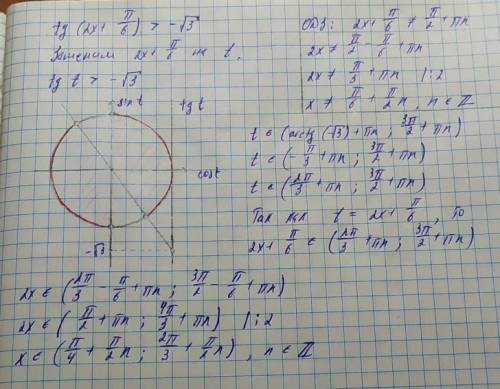 tg (2x + π/6) > -√3
Заменим 2x + π/6 на t.
tg t > -√3
sin t
tg t
cos t
-√3
ОДЗ: 2x + π/6 ≠ π/2 + πn
2x ≠ π/2 - π/6 + πn
2x ≠ π/3 + πn | :2
x ≠ π/6 + π/2 n, n ∈ Z
t ∈ (arctg (-√3) + πn ; 3π/2 + πn)
t ∈ (-π/3 + πn ; 3π/2 + πn)
t ∈ (2π/3 + πn ; 3π/2 + πn)
Так как t = 2x + π/6, то
2x + π/6 ∈ (2π/3 + πn ; 3π/2 + πn)
2x ∈ (2π/3 - π/6 + πn ; 3π/2 - π/6 + πn)
2x ∈ (π/2 + πn ; 4π/3 + πn) | :2
x ∈ (π/4 + π/2 n ; 2π/3 + π/2 n), n ∈ Z